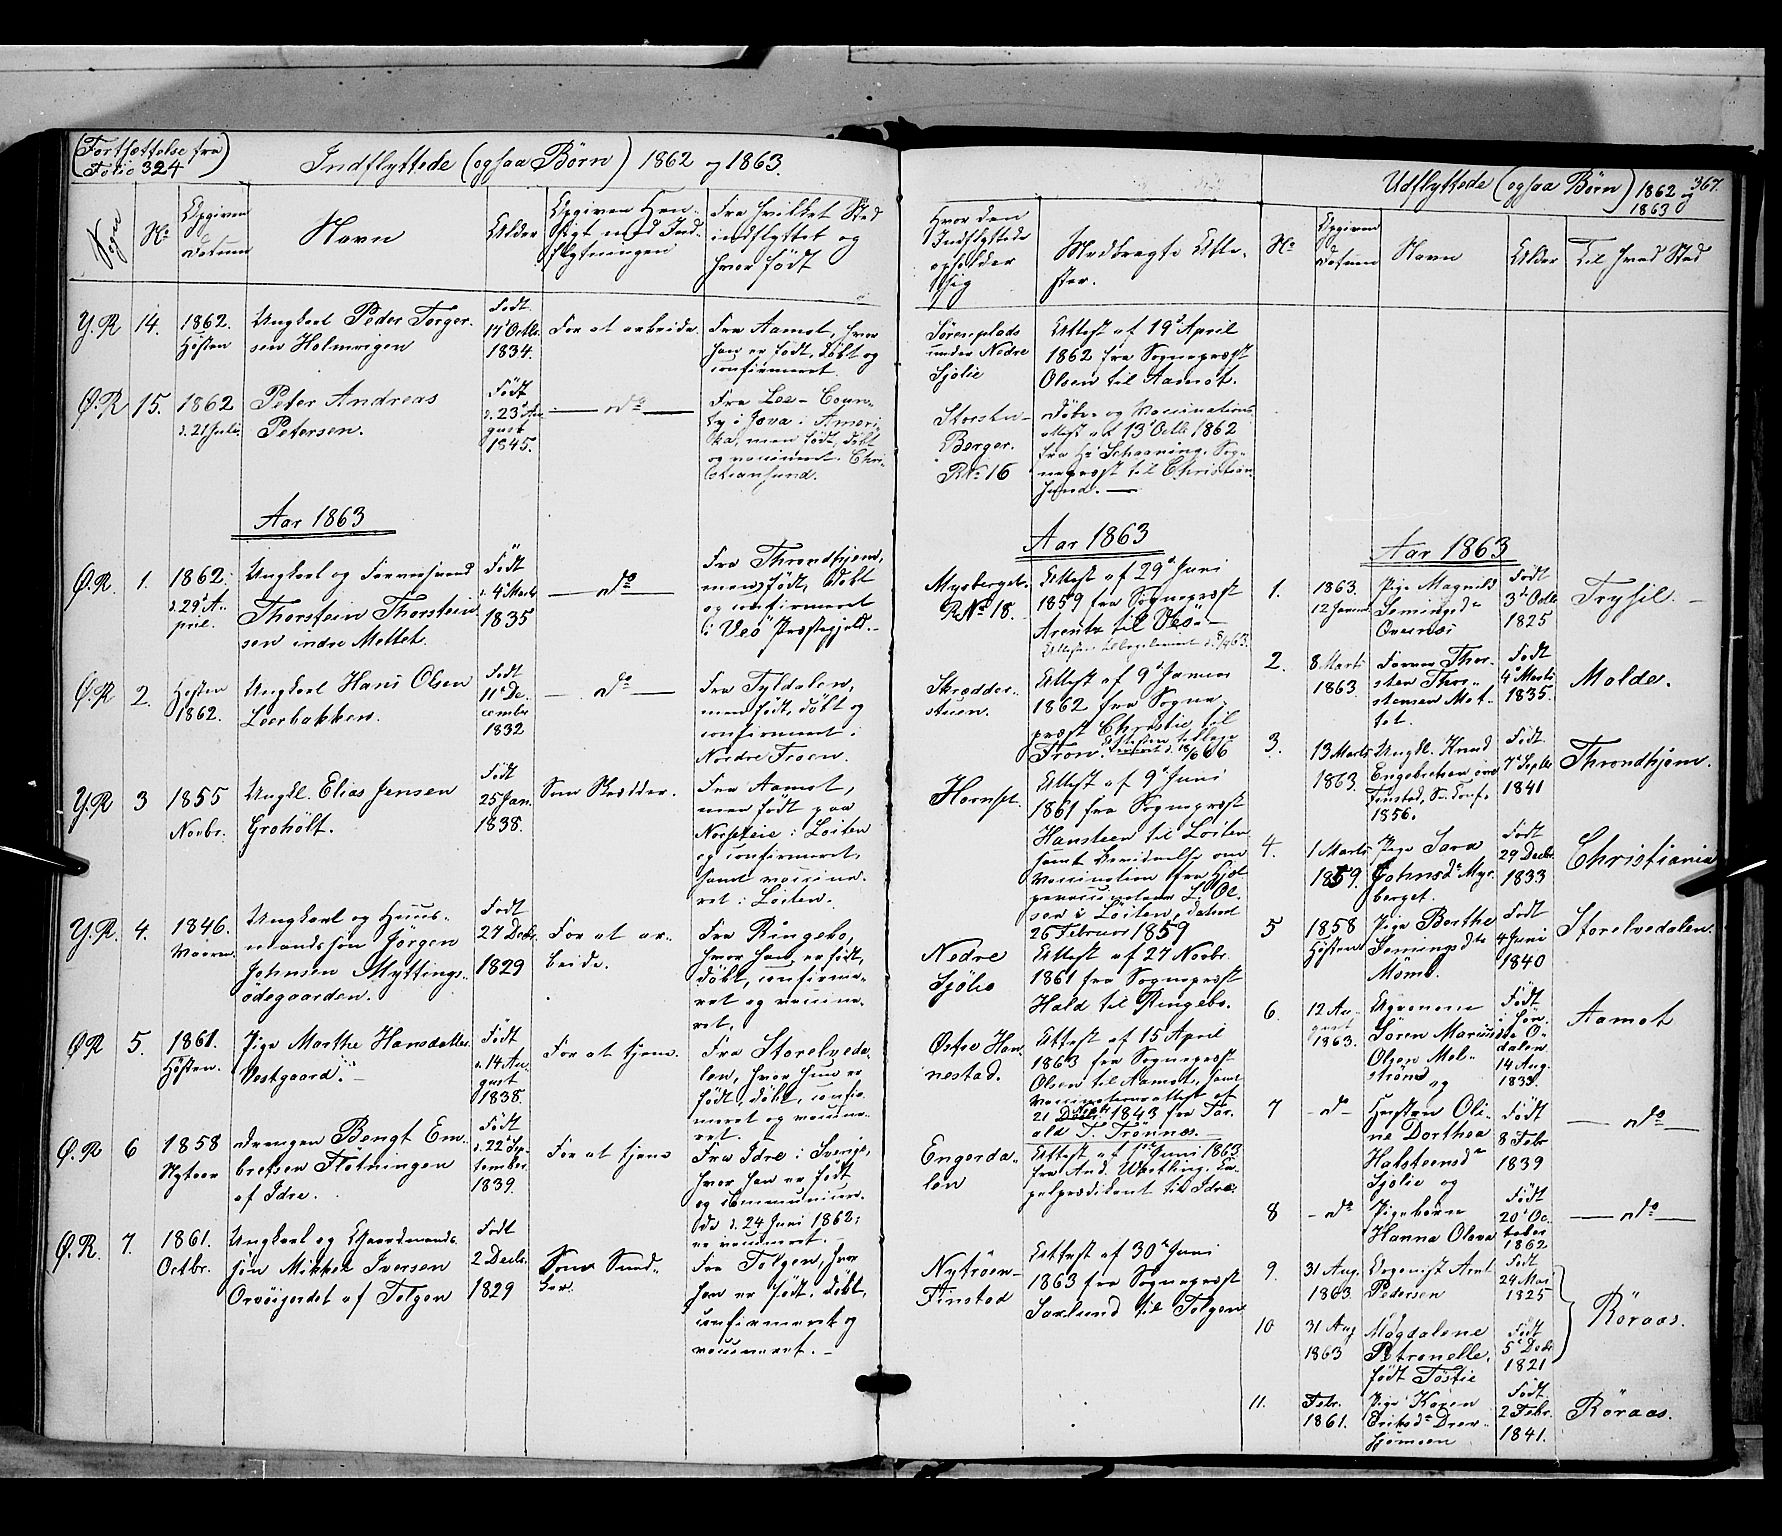 (Fortsættelse fra
Folio 324)
Indflyttede (ogsaa Børn) 1862 og 1863.
Udflyttede (ogsaa Børn) 1862 og 1863
367.
Sogn
No
Opgiven Datum
Navn
Alder
Opgiven Hen-
sigt med Ind-
flytningen
Fra hvilket Sted
indflyttet og
hvor født
Hvor den
Indflyttede
opholder
sig
Medbragte Atte-
ster.
No
Opgiven
Datum
Navn
Alder
Til hvad Sted
Y.R
14.
1862.
Høsten
Ungkarl Peder Torger-
sen Holmsegen
Født
17 Octbr.
1834.
For at arbeide.
Fra Aamot, hvor
han er født, døbt og
confirmeret.
Sørenplads
under Nedre
Sjølie
Attest af 19de April
1862 fra Sognepræst
Olsen til Aamot.
Ø.R
15.
1862
d. 21 Juli
Peter Andreas
Petersen.
Født
d. 23 Au-
gust
1845.
— do —
Fra Lee-Coun-
ty i Jova i Ameri-
ka, men født, døbt
og vaccineret i Chri-
stiansund.
Storstu-
Berger.
R No 16
Døbe- og Vaccinations-
attest af 13de Octbr 1862
fra Hr Schavning, Sog-
nepræst til Christian-
sund. —
Aar 1863
Aar 1863
Aar 1863
Ø.R.
1.
1862.
d. 29 A-
pril.
Ungkarl og Farversvend
Thorstein Thorstein-
sen indre Mettet.
Født
d. 4 Marts
1835
— do —
Fra Throndhjem,
men født, døbt
og confirmeret
i Veø Præstegjeld.
Mysberget
R No 18.
Attest af 29de Juni
1859 fra Sognepræst
Arentz til Veø.
Ø.R
2.
Høsten
1862.
Ungkarl Hans Olsen
Leerbakken.
Født
11 De-
cember
1832
— do —
Fra Tyldalen,
men født, døbt og
confirmeret i
Nordre Froen.
Skrædder-
stuen.
Attest af 9de Januar
1862 fra Sogne-
præst Christie til
Fron.
Y.R
3
1855
Novbr.
Ungkl. Elias Jensen
Groholt.
Født
25 Jan.
1838.
Som Skrædder.
Fra Aamot,
men født paa
Norsekeie i Løiten
og confirmeret,
samt vaccine-
ret i Løiten.
Hornset.
Attest af 9de Juni
1861 fra Sognepræst
Hansteen til Løiten
samt Bevidnelse om
Vaccination fra Hjæl-
pevaccinatør L. Ol-
sen i Løiten, dateret
26 Februar 1859
Y.R.
4.
1846.
Vaaren.
Ungkarl og Huus-
mandssøn Jörgen
Johnsen Myttings-
ödegaarden.
Født
27 Decbr.
1829
For at ar-
beide.
Fra Ringebo,
hvor han er født,
døbt, confirme-
ret og vaccine-
ret.
Nedre
Sjölie
Attest af 27 Novbr.
1861 fra Sognepræst
Hald til Ringebo.
Ø.R
5.
1861.
Høsten.
Pige Marthe Hansdatter
Vestgaard.
Født
d. 14 Au-
gust
1838.
For at tjene.
Fra Storelveda-
len, hvor hun er
født, døbt, confir-
meret og vaccine-
ret.
Østre Han-
nestad.
Attest af 15 April
1863 fra Sognepræst
Olsen til Aamot, samt
Vaccinationsattest af
21 Decbr. 1843 fra Tor-
ald T. Trønnes.
Ø.R
6
1858
Nytaar
Drengen Bengt Em-
bretsen Flötningen
af Idre.
Født
d. 22 Sep-
tember
1839.
For at tjene
Fra Idre i Sverige,
hvor han er født
og communicere-
de d. 24 Juni 1862;
er vaccineret.
Engerda-
len
Attest af 1ste Juni 1863
fra And. Westling, Ka-
pelprædikant til Idre.
Ø.R.
7.
1861.
Octbr.
Ungkarl og Gaardmands-
søn Mikkel Iversen
Orvøigerdet af Tolgen
Født
2 Decbr.
1829
Som Sned-
ker.
Fra Tolgen, hvor
han er født, døbt,
confirmeret og
vaccineret. —
Nytröen-
Finstad
Attest af 30de Juni
1863 fra Sognepræst
Saxlund til Tolgen
1.
1863.
12 Januar
Pige Magnild
Semingsdr
Ovrenæs
Født
3de Octbr
1825
Trysil. —
2.
8 Marts
1863.
Farver Thor-
sten Thor-
stensen Met-
tet.
Født
4 Marts
1835.
Molde.
3.
13 Marts
1863.
Ungkl. Knud
Engebretsen
Finstad,
1856.
Født
7 Septbr
1841
Throndhjem.
4.
1 Marts
1859.
Pige Sara
Johnsdr Mys-
berget.
Født
29 Decbr.
1833
Christiania
5
1858
Høsten
Pige Berthe
Semingsdtr
Mömb.
Født
4 Juni
1840
Storelvedalen.
6.
12 Au-
gust
1863.
Sören Marius
Olsen Mel-
ström
og
Født
i Søn-
dre O-
dalen
14 Aug.
1833.
Aamot
7
— do —
Hustru Oli-
ne Dorthea
Halsteensdr
Sjölie og
Født
8 Febr
1839
— do —
8
— do
Pigebarn
Hanna Olava
Født
20 Oc-
tober
1862
— do —
9.
31 Aug.
1863
Organist Arnt
Pedersen
Født
24 Mar.
1825
10
31 Aug
1863
Magdalene
Petronelle,
født Töstie
Født
5 Decbr
1821
Röraas.
11.
Febr.
1861.
Pige Karen
Eriksdr Drev-
sjömoen
Født
2 Febr.
1841.
Röraas.